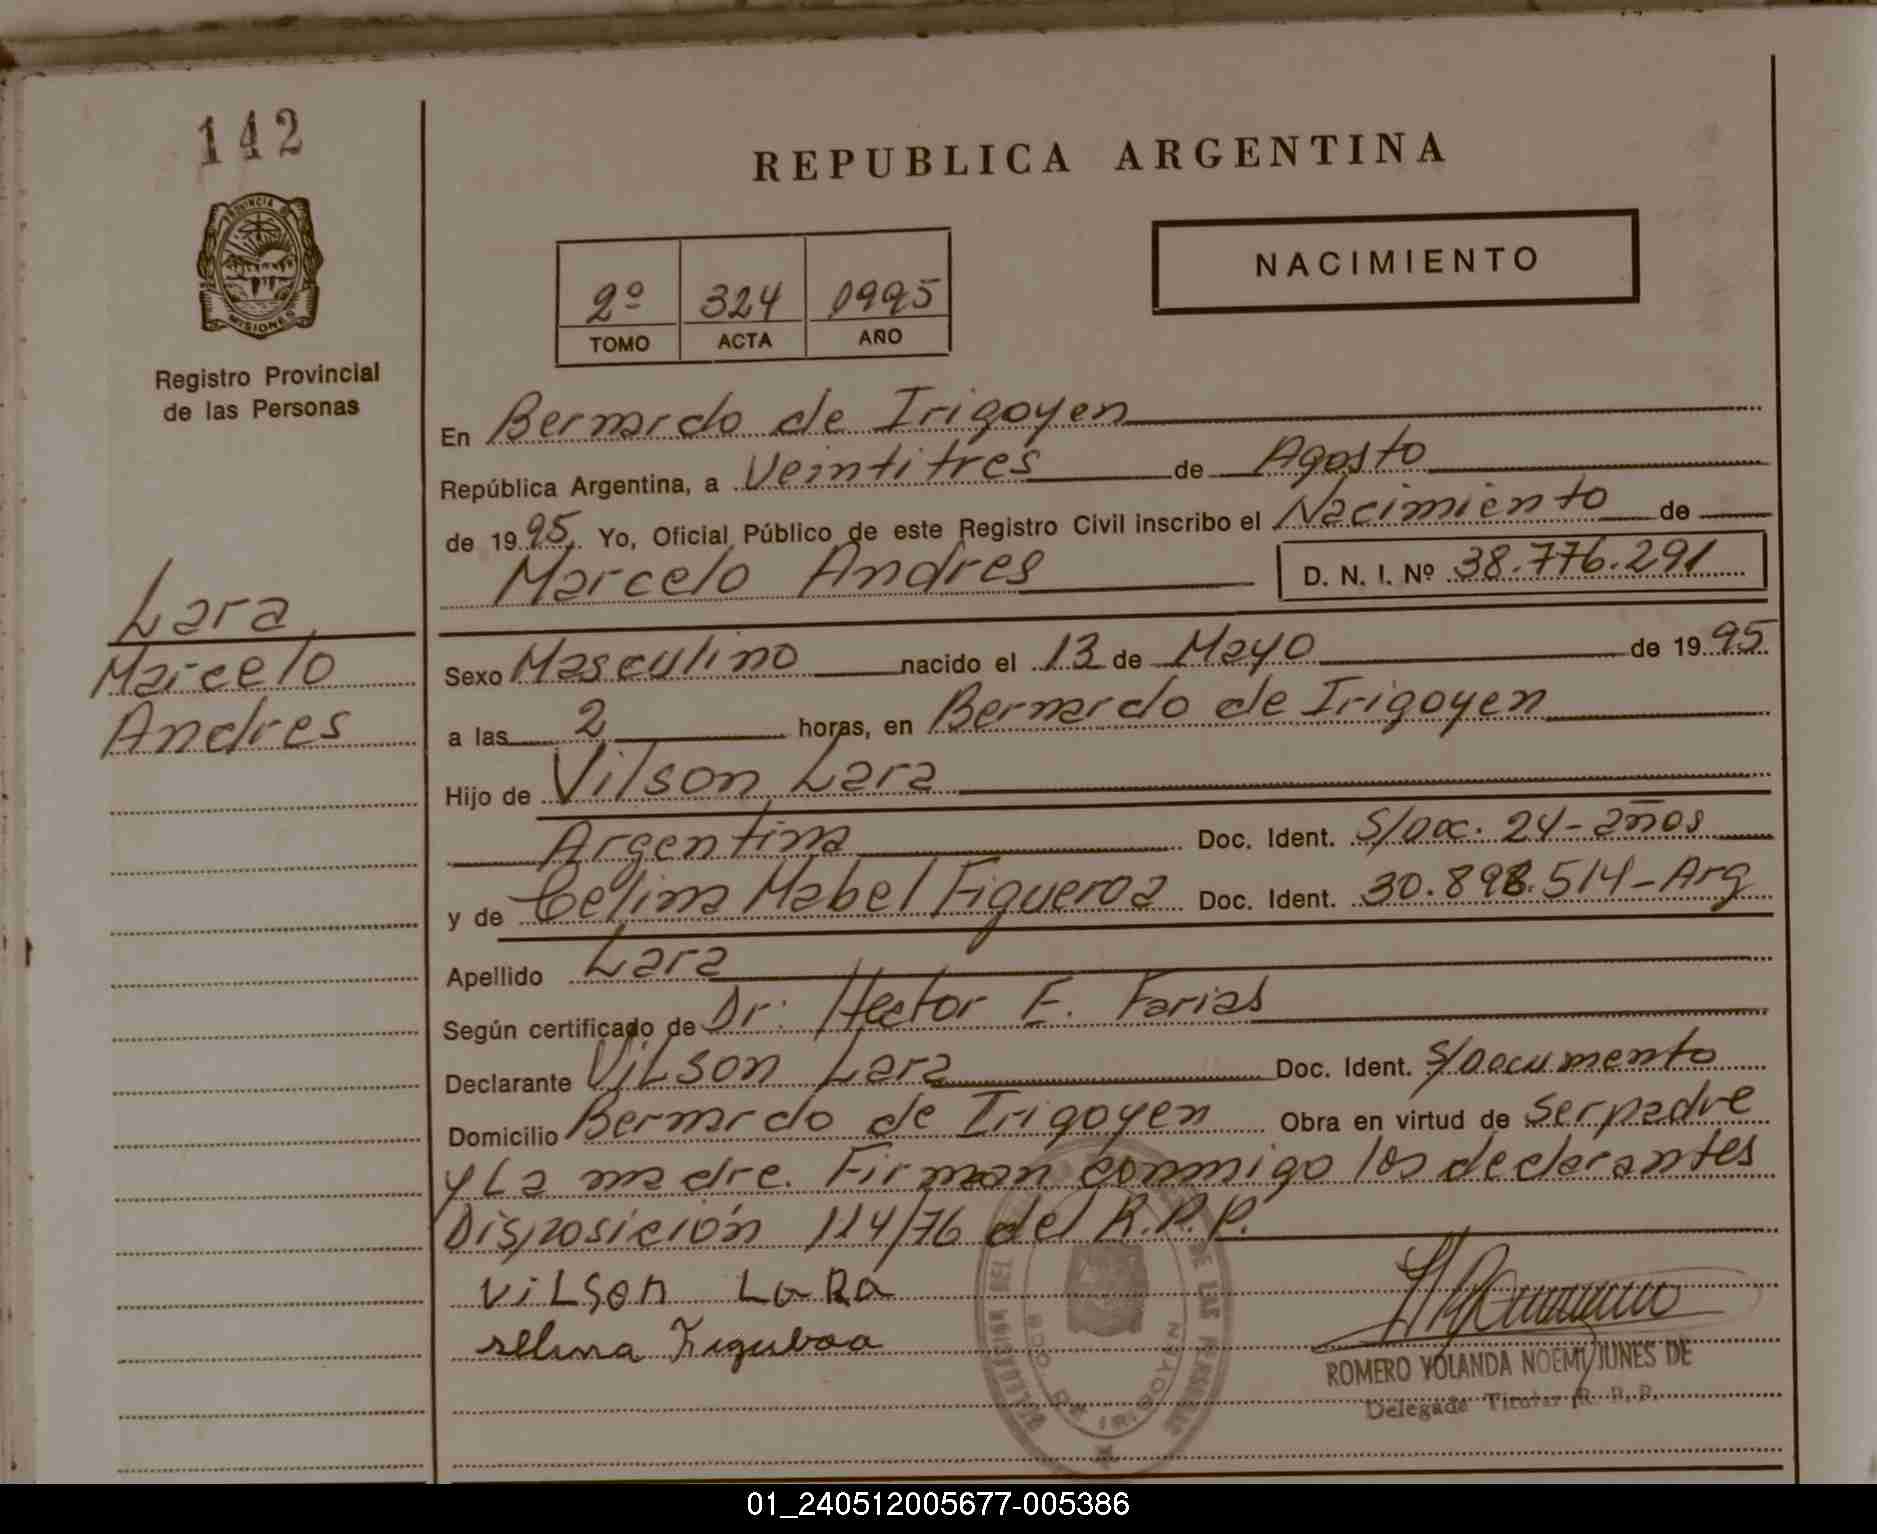 142
REPUBLICA ARGENTINA
PROVINCIA DE
MISIONES
Registro Provincial
de las Personas
NACIMIENTO
2º 324 1995
TOMO ACTA AÑO
En Bernardo de Irigoyen
República Argentina, a Veintitres de Agosto
de 1995. Yo, Oficial Público de este Registro Civil inscribo el Nacimiento de
Marcelo Andres D. N. I. Nº 38.776.291
Lara
Marcelo
Andres
Sexo Masculino nacido el 13 de Mayo de 1995
a las 2 horas, en Bernardo de Irigoyen
Hijo de Vilson Lara
Argentina Doc. Ident. S/Doc. 24-años
y de Celina Mabel Figueroa Doc. Ident. 30.898.514-Arg
Apellido Lara
Según certificado de Dr. Hector E. Farias
Declarante Vilson Lara Doc. Ident. S/Documento
Domicilio Bernardo de Irigoyen Obra en virtud de ser padre
y La madre. Firman conmigo los declarantes
Disposición 114/76 del R.P.P.
ViLSon LaRa
selina
ROMERO YOLANDA NOEMI JUNES DE
Delegada Titular R. P. P.
BDO. DE IRIGOYEN
01_240512005677-005386